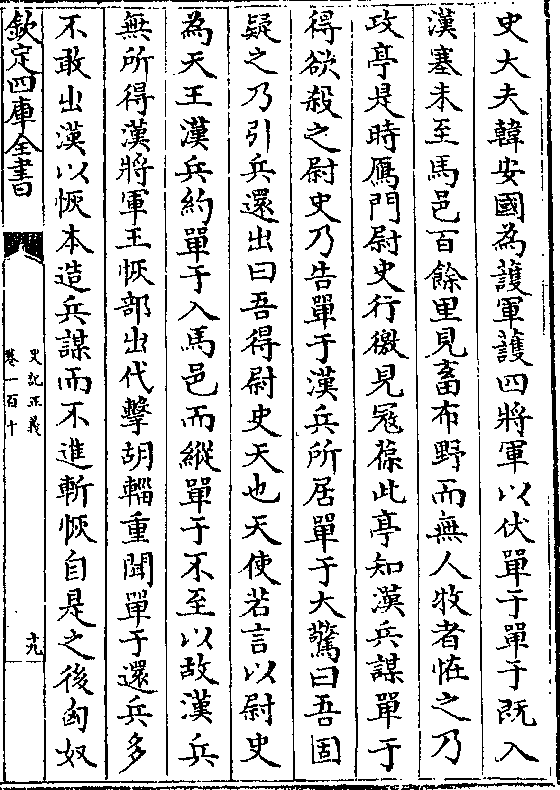 史大夫韓安國為護軍護四將軍以伏單于單于既入
漢塞未至馬邑百餘里見畜布野而無人牧者怪之乃
攻亭是時鴈門尉史行徼見冦葆此亭知漢兵謀單于
得欲殺之尉史乃告單于漢兵所居單于大驚曰吾固
疑之乃引兵還出曰吾得尉史天也天使若言以尉史
為天王漢兵約單于入馬邑而縱單于不至以故漢兵
無所得漢將軍王恢部出代擊胡輜重聞單于還兵多
不敢出漢以恢本造兵謀而不進斬恢自是之後匈奴
欽定四庫全書
史記正義
卷一百十
十九